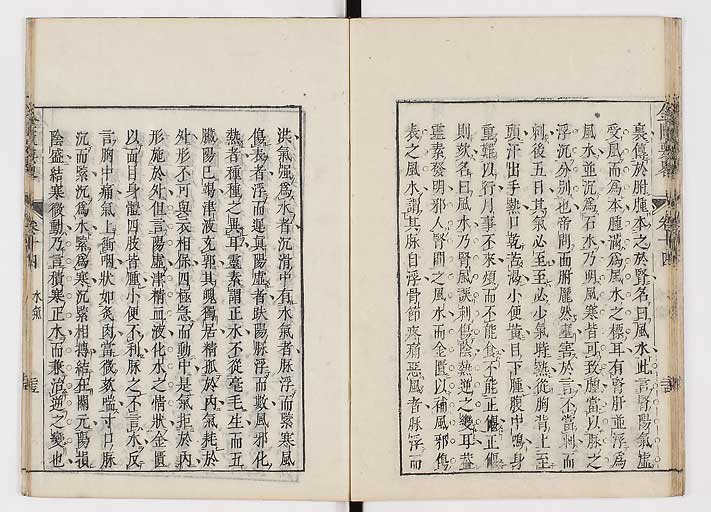 裏傳於胕腫本之於腎名曰風水此言腎陽氣虛
受風而為本腫滿為風水之標耳有腎肝並浮為
風水並沉為石水乃明風寒皆可致腫當以脉之
浮沉分別也帝問面胕龐然壅害於言不當刺而
刺後五日其氣必至至必少氣時熱從胸背上至
頭汗出手熱口乾苦渴小便黃目下腫腹中鳴身
重難以行月事不來煩而不能食不能正偃正偃
則欬名曰風水乃腎風誤刺傷陰熱逆之變耳蓋
靈素發明邪入腎間之風水而金匱以補風邪傷
表之風水謂其脉自浮骨節疼痛惡風者脉浮而
洪氣強為水者沉滑中有水氣者脉浮而緊寒風
傷表者浮而遲真陽虛者趺陽脉浮而數風邪化
熱者種種之異耳靈素謂正水不從毫毛生而五
臟陽已竭津液充郭其魄獨居精孤於內氣耗於
外形不可與衣相保四極急而動中是氣拒於內
形施於外但言陽虛津精血液化水之情狀金匱
以面目身體四肢皆腫小便不利脉之不言水反
言胸中痛氣上衝咽狀如炙肉當微欬喘寸口脉
沉而緊沉為水緊為寒沉緊相摶結在關元陽損
陰盛結寒微動乃言積寒正水而兼治逆之變也
金匱要畧
卷十四
水氣